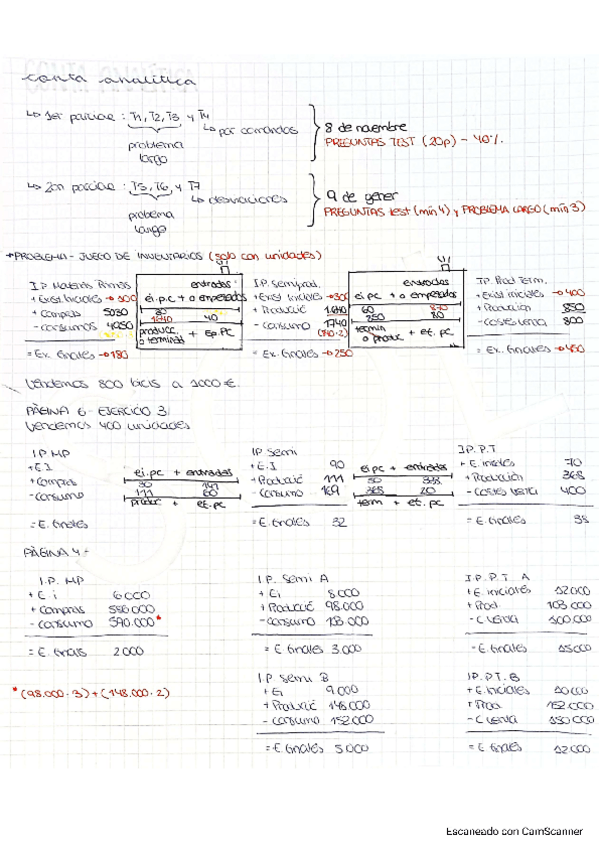 conta analítica
↳ 1er parcial: T1, T2, T3 y T4
↳ por comandos
problema
largo
8 de noviembre
PREGUNTAS TEST (20p) - 40%
↳ 2on parcial: T5, T6, y T7
↳ desviaciones
problema
largo
9 de gener
PREGUNTAS test (mín 4) y PROBLEMA LARGO (mín 3)
PROBLEMA - JUEGO DE INVENTARIOS (solo con unidades)
+ Exist. Iniciales → 300
+ Compras 5030
- consumos
= Ex. finales → 180
entradas
ei.pc + o empezados
produc. + ef.PC
o terminads
I.P. semiprod.
+ Exist iniciales → 300
+ Producció
- consumo 1740
(870·2)
= Ex. finales → 250
entradas
ei.pc + o empezados
termin + ef. PC
o produc
I.P. Prod Term.
+ Exist iniciales → 400
+ Producción 850
- costes venta 800
= Ex. finales → 450
Vendemos 800 bicis a 1000 €.
PÀGINA 6 - EJERCICIO 3
Vendemos 400 unidades
I.P MP
+ E.I
+ Compras
- consumo
= E. finales
ei.pc + entradas
30 141
111 60
produc + ef.pc
IP Semi
+ E.I 90
+ Producció 111
- Consumo 169
= E. finales 32
ei.pc + entrades
50 338
368 20
term + ef.pc
I.P.P.T
+ E. iniciales 70
+ Producción 368
- Costes venta 400
= E. finales 38
PÀGINA 4 -
I.P. MP
+ E i 6000
+ Compras 586.000
- Consumo 590.000*
= E. finals 2000
I.P. Semi A
+ Ei 8000
+ Producció 98.000
- consumo 103.000
= E finales 3.000
I.P.P.T A
+ E. iniciales 12000
+ Prod. 103 000
- C venta 100.000
- E. finales 15000
*(98.000·3)+(148.000·2)
I.P Semi B
+ Ei 9.000
+ Producció 148 000
- Consumo 152.000
= E finales 5000
I.P.P.T. B
+ E. Iniciales 10000
+ Prod 152.000
- C venta 150000
= E finales 12000
Escaneado con CamScanner